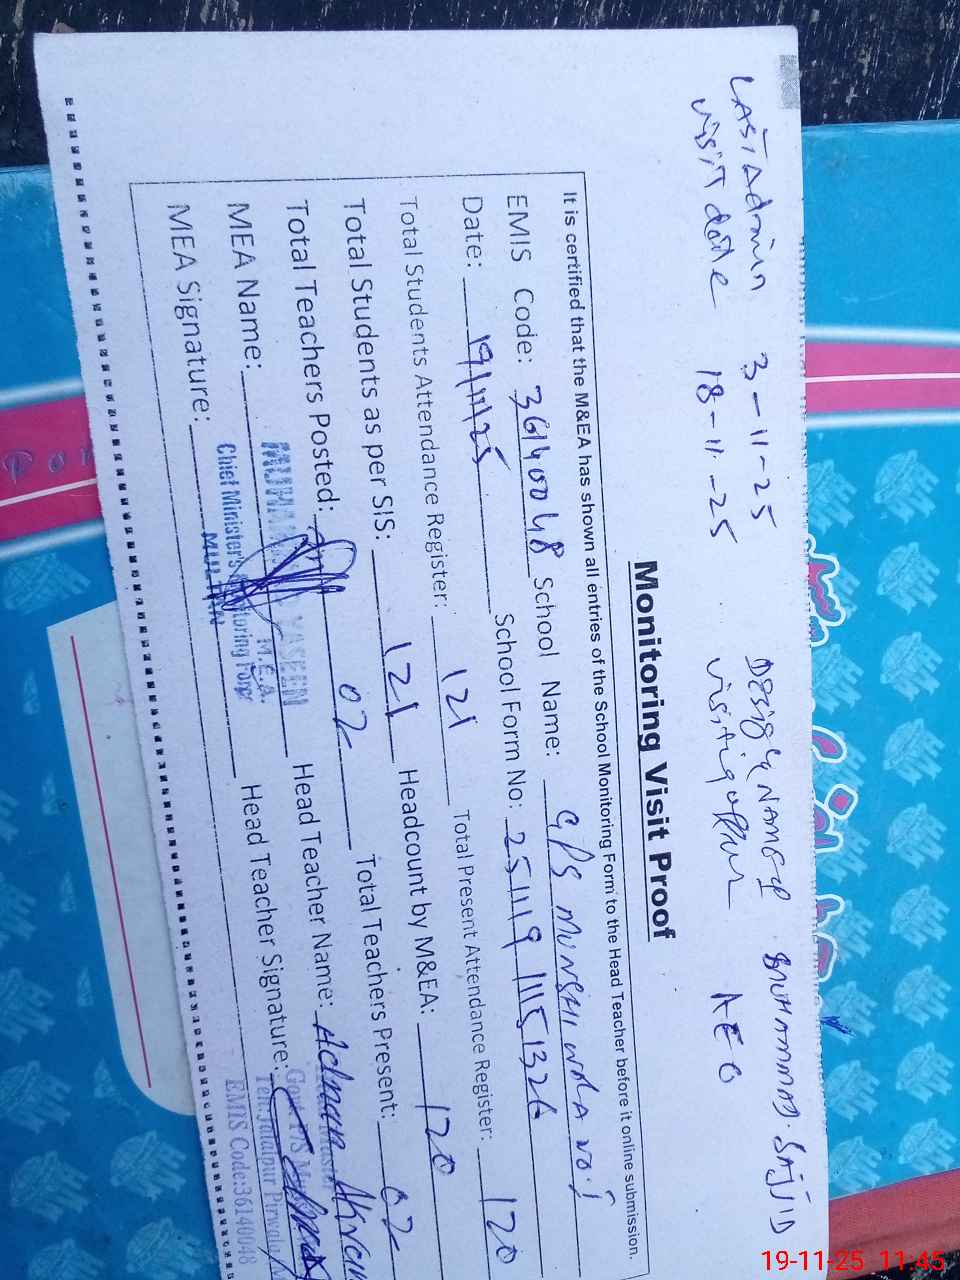 LAST Admin 3-11-25 Desig & NAME of MUHAMMAD SAJJID
visit date 18-11-25 visiting AEO
Monitoring Visit Proof
It is certified that the M&EA has shown all entries of the School Monitoring Form to the Head Teacher before it online submission.
EMIS Code: 36140048 School Name: GPS MUNSHI WALA NO.1
Date: 19/11/25 School Form No: 25111911151326
Total Students Attendance Register: 121 Total Present Attendance Register: 120
Total Students as per SIS: 121 Headcount by M&EA: 120
Total Teachers Posted: 02 Total Teachers Present: 02
MEA Name: Head Teacher Name: Adnan
MUHAMMAD YASEEN
M.E.A.
Chief Minister's Monitoring Force
MULTAN
MEA Signature: Head Teacher Signature:
Teh: Jalalpur Pirwala
EMIS Code:36140048
19-11-25 11:45